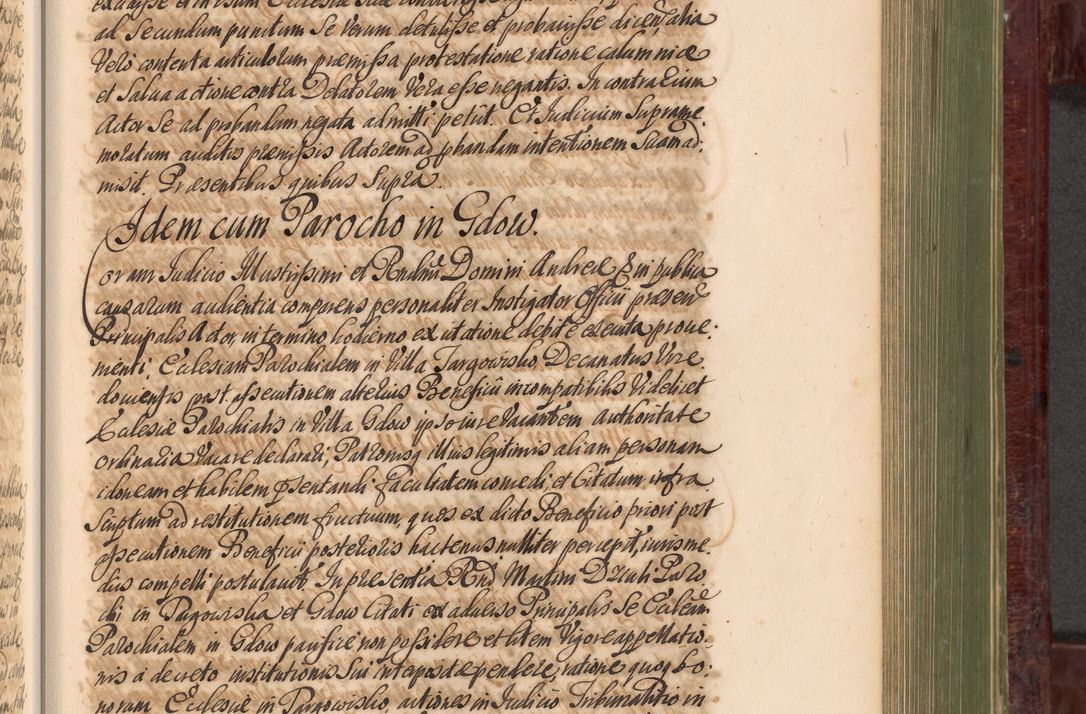 ad Secundum punctum Se verum detulisse et probavisse dicen, alia
Vero contenta articulorum præmissa protestatione ratione calumniæ
et Salva actione contra Delatorem Vera esse negantis. In contrarium
Actor Se ad probandum negata admitti petiit. Et Judicium Suprame.
moratum auditis præmissis Actorem ad pbandam intentionem Suam ad:
misit. Præsentibus quibus Supra.
Idem cum Parocho in Gdow.
Coram Judicio Illustrissimi et Rndmi Domini Andreæ & in publica
causarum audientia comparens personaliter Instigator Officii præsen
Principalis Actor, in termino hodierno ex citatione debite executa prove:
nienti, Ecclesiam Parochialem in Villa Targowisko Decanatus Wie
locensis post assecutionem alterius Beneficii incompatibilis Videlicet
Ecclesiæ Parochialis in Villa Gdow ipso iure Vacantem authoritate
Ordinaria Vacare declarari, Patronisq illius legitimis aliam personam
idoneam et habilem psentandi facultatem concedi, et Citatum infra
Scriptum ad restitutionem fructuum, quos ex dicto Beneficio priori post
assecutionem Beneficii posterioris hactenus nulliter percepit, iuris me:
diis compelli postulavit. In præsentia Rnd Martini Dziuli Paro
chi in Targowiska et Gdow Citati ex adverso Principalis Se Ecclesiam
Parochialem in Gdow pacifice non possidere et litem Vigore appellatio:
nis a decreto institutionis Sui interpositæ pendere, ratione quoq bo:
norum Ecclesiæ in Targowisko, actiones in Judicio Tribunalitio in